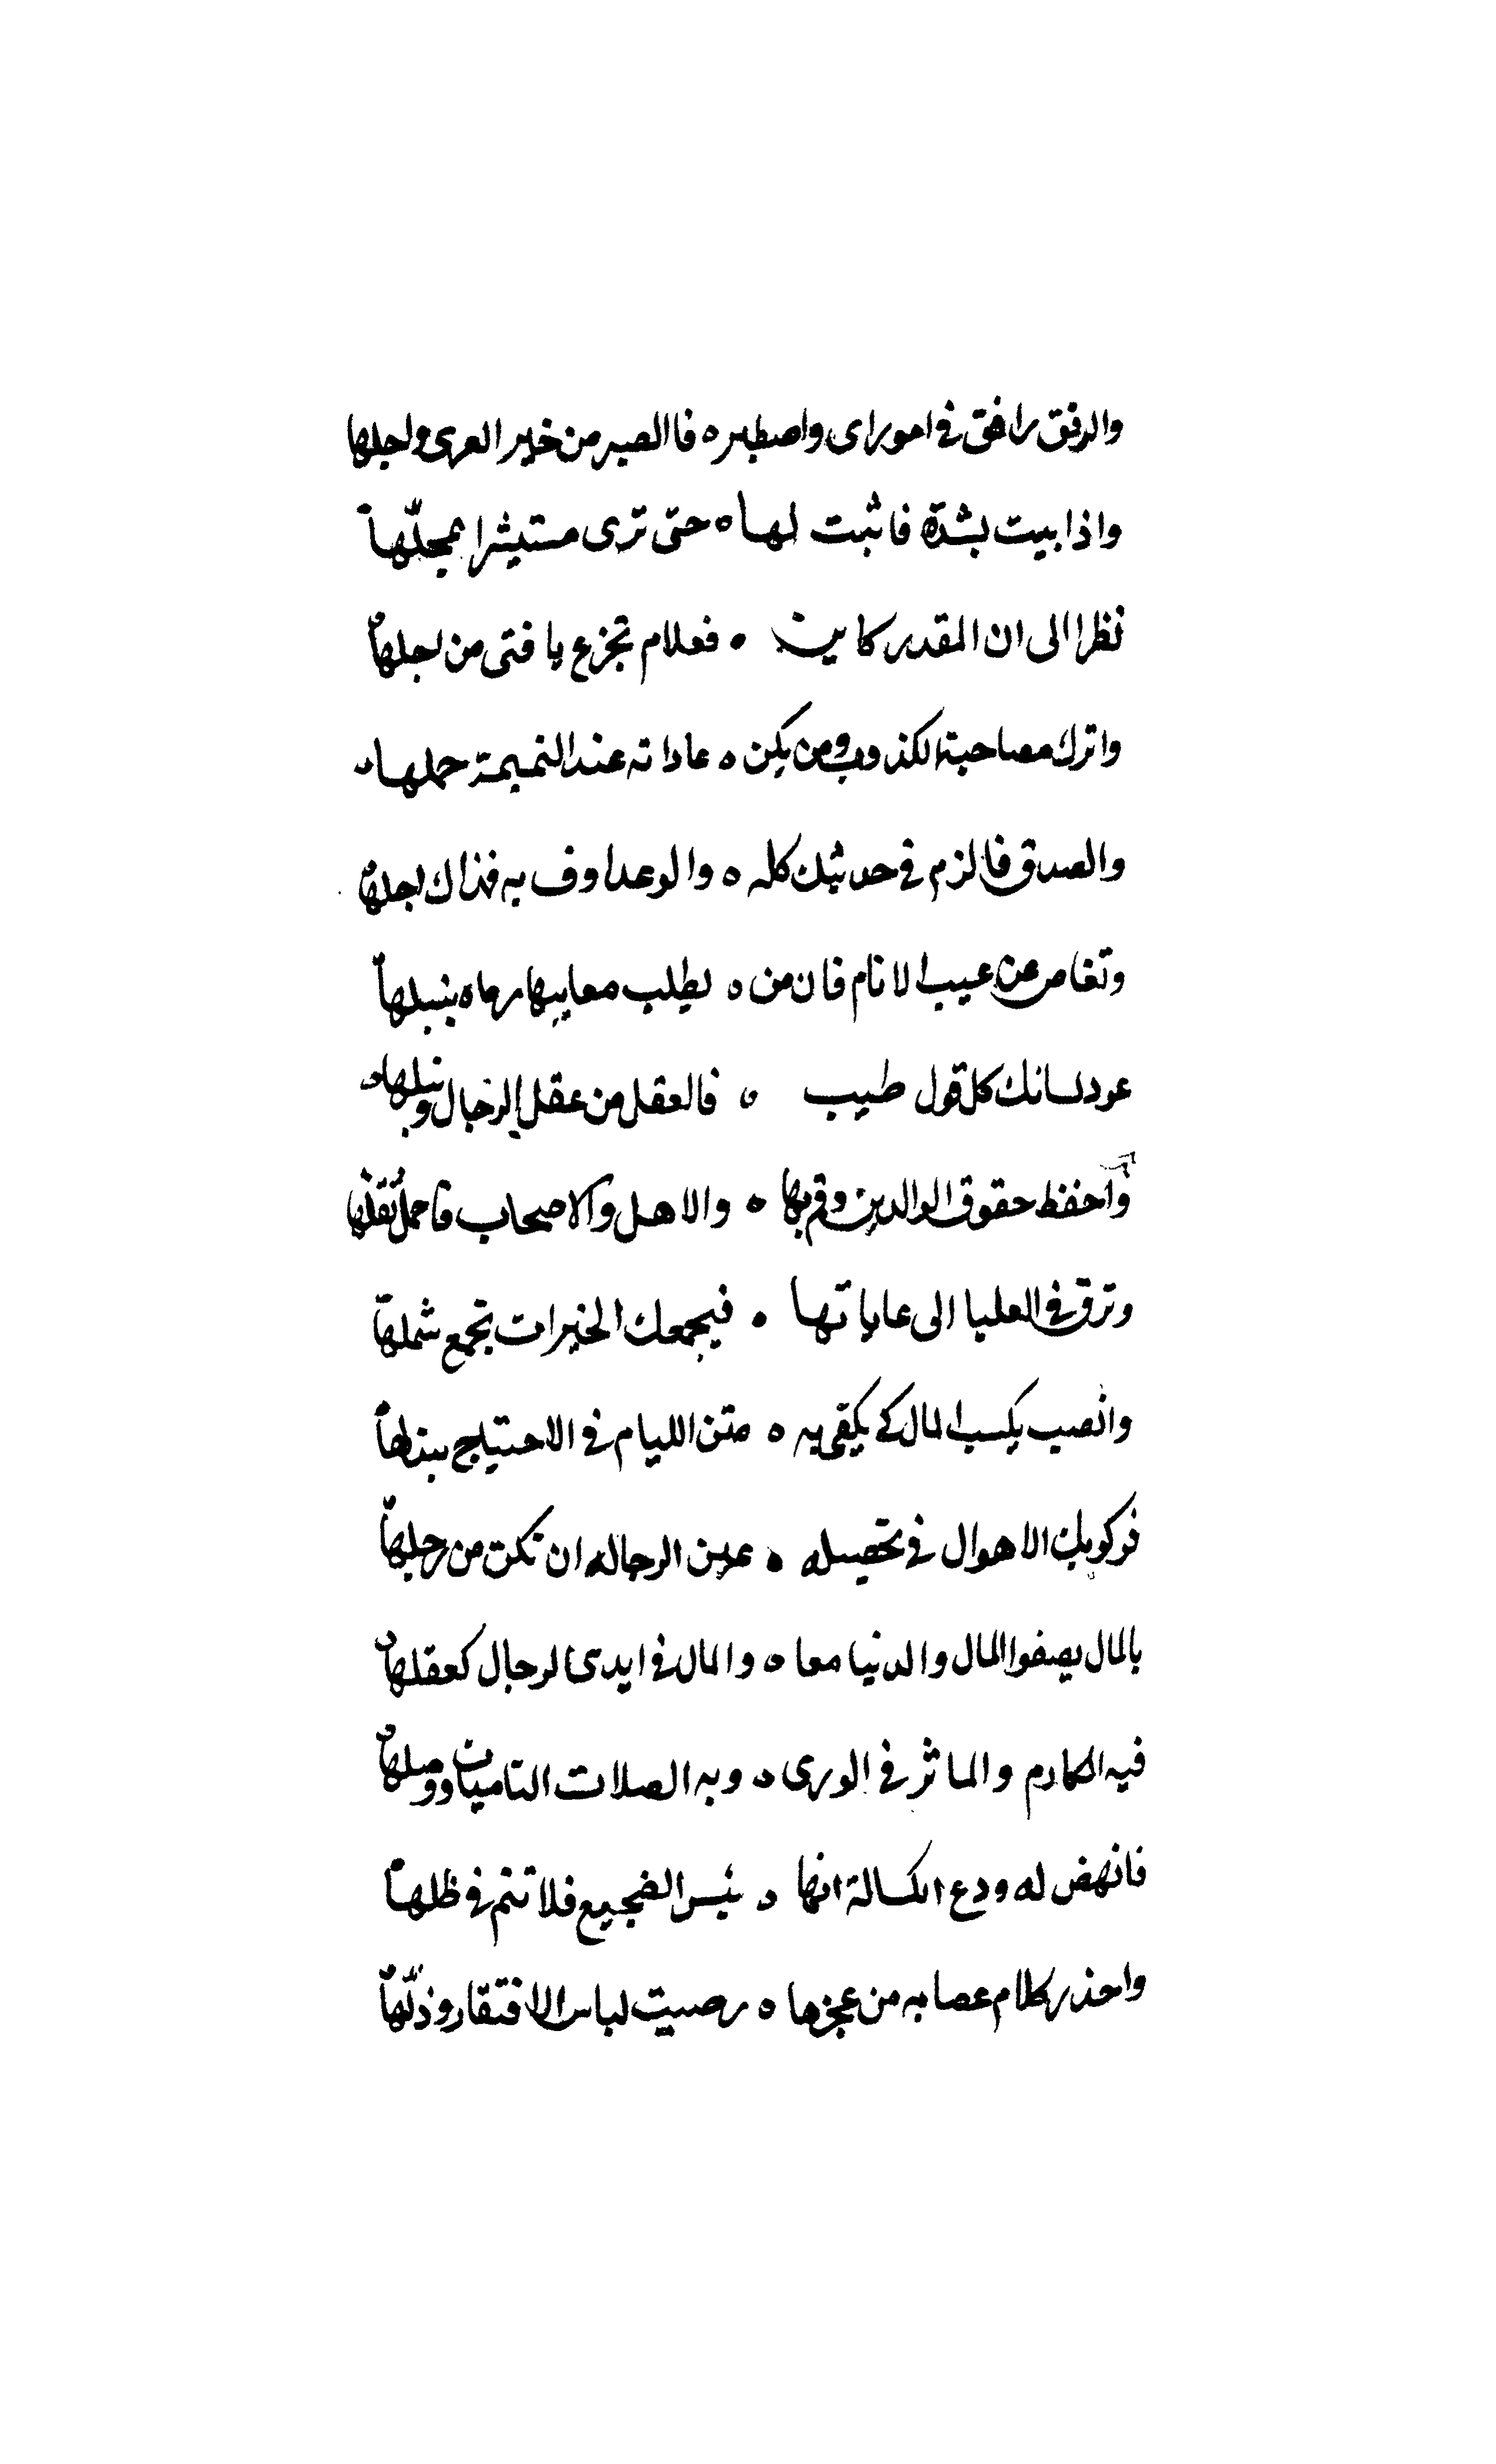 والرفق رافق في امور اى واصطبر ه فاالصبر من خير العرى واجلها
واذا بيت بشدة فاثبت لها ه حتى ترى مستبشرا بمحلّها
نظرا الى ان المقدر كاين ه فعلام تجزع يا فتى من اجلها
واترك مصاحبة الكذوب ومن يكن ه عاداته عند النميمة حملها
والصدق فالزم في حديثك كله ه والوعد اوف به فذاك اجلها
وتغاص عن عيب الانام فان من ه يطلب معايبها رماه بنبلها
عود لسانك كل قول طيب ه فالعقل من عقل الرجال ونبلها
واحفظ حقوق الوالدين وقربها ه والاهل والاصحاب فاحمل ثقلها
وترق في العليا الى عاياتها ه فيجمعك الخيرات تجمع شملها
وانصب بكسب المال كي يكفى به ه منن الليام في الاحتياج ببذلها
فركوبك الاهوال في تحصيله ه عين الرجاله ان تكن من رجلها
بالمال يصفوا المال والدنيا معا ه والمال في ايدى الرجال كعقلها
فيه المكارم والماثر في الورى ه وبه الصلات الناميات ووصلها
فانهض له ودع الكسالة انها ه بئس الضجيع فلا تنم في ظلها
واحذر كلام عصابه من عجزها ه رضيت لباس الافتقار وذلّها